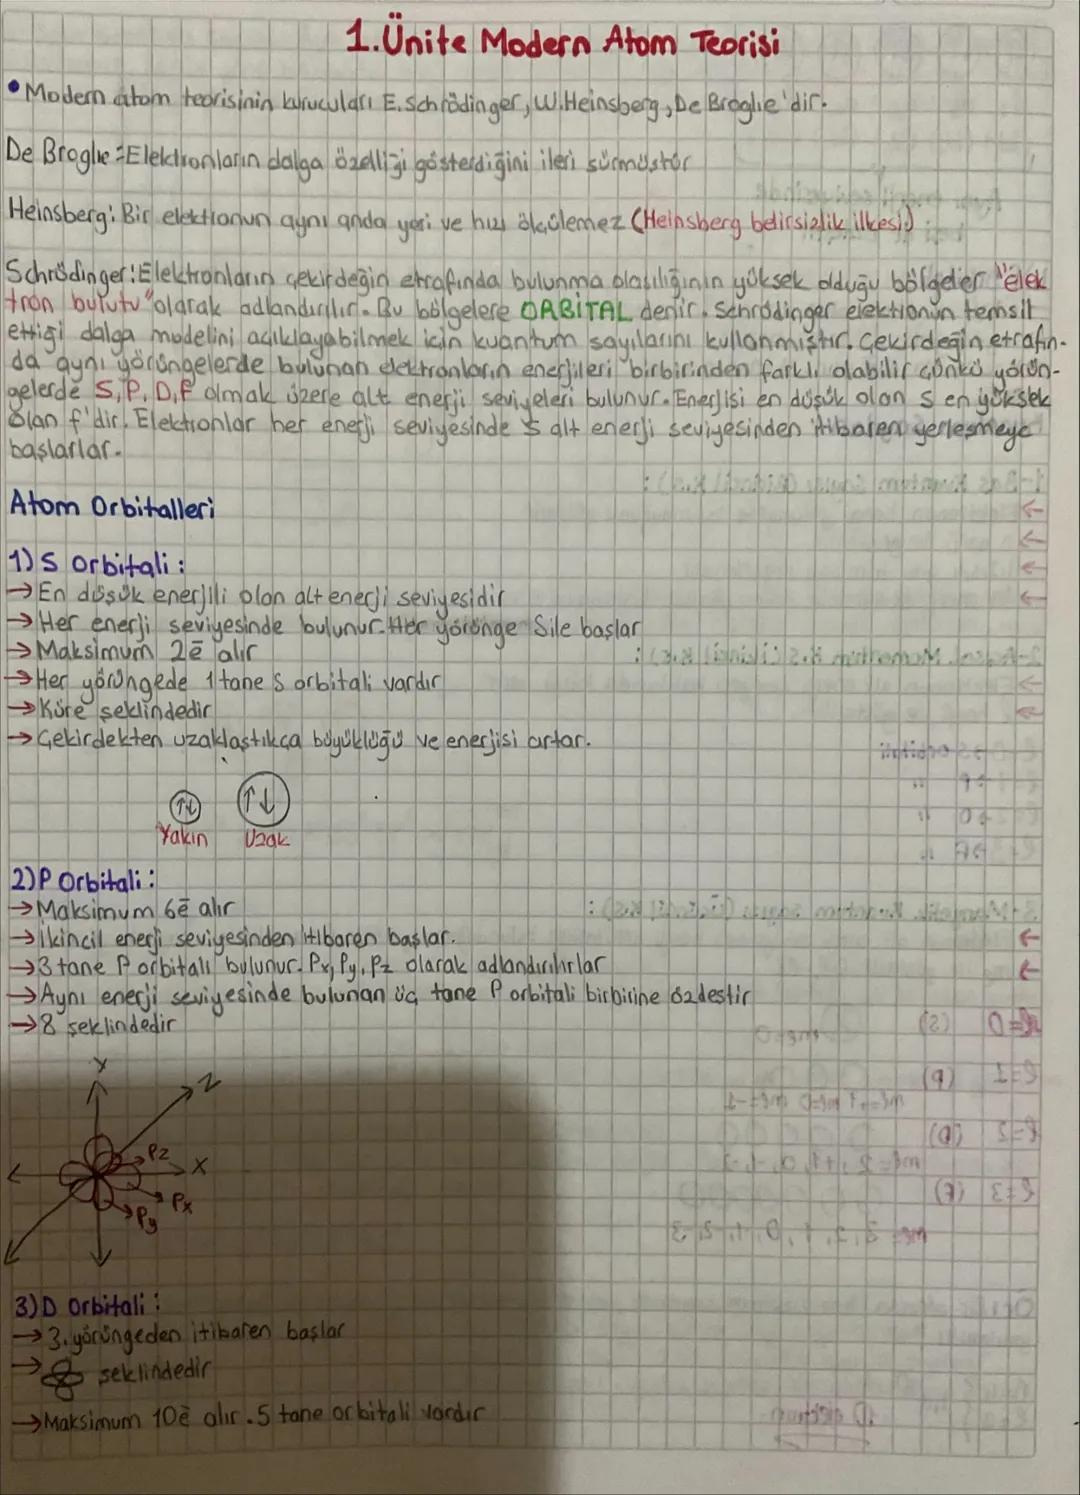 1.Ünite Modern Atom Teorisi
• Modern atom teorisinin kurucuları E.Schrödinger, W.Heinsberg, De Broglie'dir.
De Broglie: Elektronların dalga özelliği gösterdiğini ileri sürmüştür
Heinsberg: Bir elektronun aynı anda yeri ve hızı ölçülemez (Heinsberg belirsizlik ilkesi)
Schrödinger: Elektronların çekirdeğin etrafında bulunma olasılığının yüksek olduğu bölgeler "elek
tron bulutu" olarak adlandırılır. Bu bölgelere ORBİTAL denir. Schrödinger elektronun temsil
ettiği dalga modelini açıklayabilmek için kuantum sayılarını kullanmıştır. Çekirdeğin etrafın-
da aynı yörüngelerde bulunan elektronların enerjileri birbirinden farklı olabilir çünkü yörün-
gelerde S, P, D, F olmak üzere alt enerji seviyeleri bulunur. Enerjisi en düşük olan s en yüksek
olan f'dir. Elektronlar her enerji seviyesinde s alt enerji seviyesinden itibaren yerleşmeye
başlarlar.
Atom Orbitalleri
1) S orbitali:
→ En düşük enerjili olan alt enerji seviyesidir
→ Her enerji seviyesinde bulunur. Her yörünge S ile başlar
→ Maksimum 2ē alır
→ Her yörüngede 1 tane s orbitali vardır
→ Küre şeklindedir
→ Çekirdekten uzaklaştıkça büyüklüğü ve enerjisi artar.
↑↓ ↑↓
Yakın Uzak
2) P Orbitali:
→ Maksimum 6ē alır
→ İkincil enerji seviyesinden itibaren başlar.
→ 3 tane P orbitali bulunur. Px, Py, Pz olarak adlandırılırlar
→ Aynı enerji seviyesinde bulunan üç tane P orbitali birbirine özdeştir
→ 8 şeklindedir
Y
Z
Pz
X
Px
Py
3) D orbitali:
→ 3. yörüngeden itibaren başlar
→ şeklindedir
→ Maksimum 10ē alır. 5 tane orbitali vardır